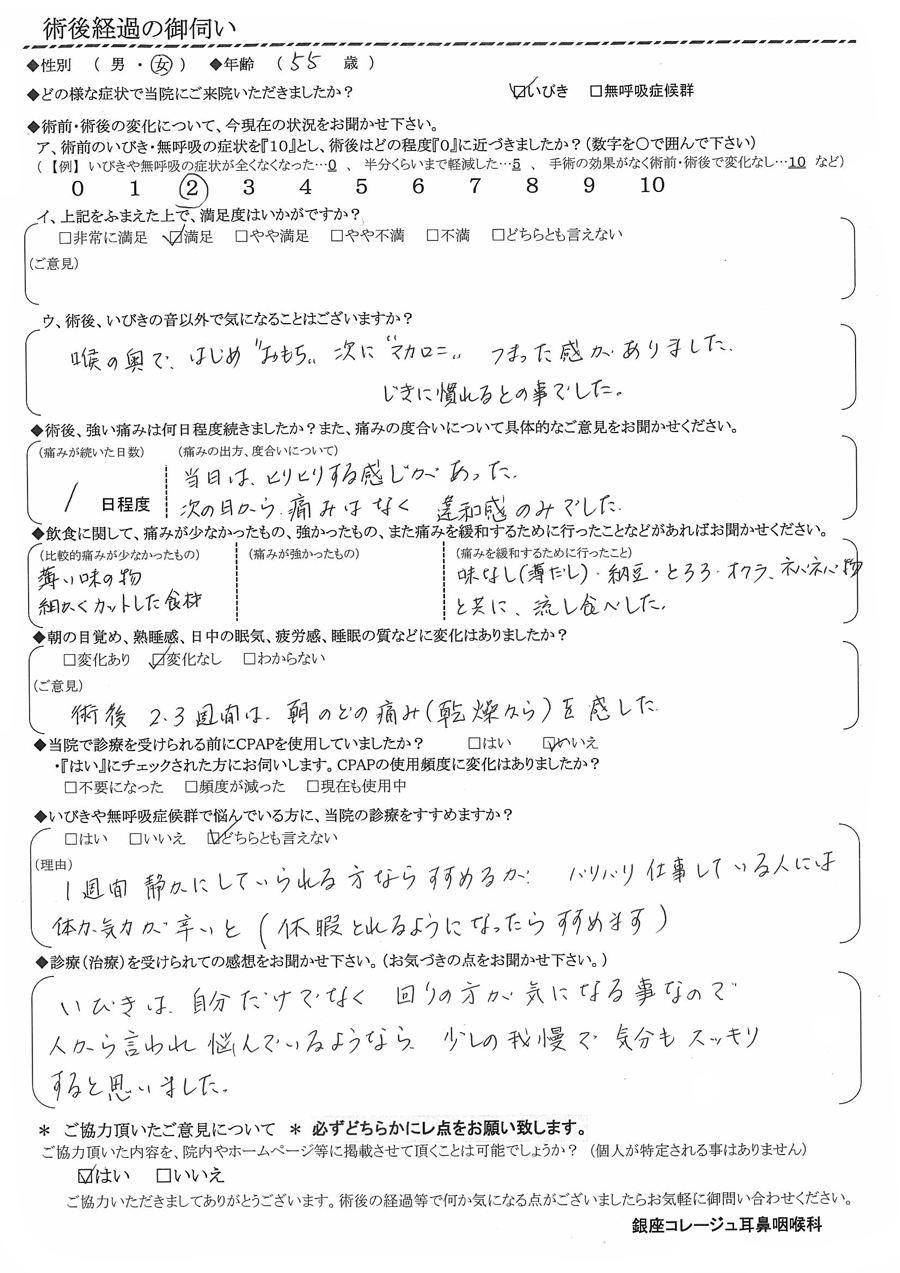 術後経過の御伺い
◆性別 （ 男 ・ 女 ） ◆年齢 （ 55 歳 ）
◆どの様な症状で当院にご来院いただきましたか？ ☑いびき □無呼吸症候群
◆術前・術後の変化について、今現在の状況をお聞かせ下さい。
ア、術前のいびき・無呼吸の症状を『10』とし、術後はどの程度『0』に近づきましたか？（数字を〇で囲んで下さい）
（【例】 いびきや無呼吸の症状が全くなくなった…0 、 半分くらいまで軽減した…5 、 手術の効果がなく術前・術後で変化なし…10 など）
0 1 2 3 4 5 6 7 8 9 10
イ、上記をふまえた上で、満足度はいかがですか？
□非常に満足 ☑満足 □やや満足 □やや不満 □不満 □どちらとも言えない
（ご意見）
ウ、術後、いびきの音以外で気になることはございますか？
喉の奥で、はじめ〝おもち〟 次に〝マカロニ〟 つまった感がありました。
じきに慣れるとの事でした。
◆術後、強い痛みは何日程度続きましたか？また、痛みの度合いについて具体的なご意見をお聞かせください。
（痛みが続いた日数） （痛みの出方、度合いについて）
当日は、ヒリヒリする感じがあった。
1 日程度 次の日から、痛みはなく 違和感のみでした。
◆飲食に関して、痛みが少なかったもの、強かったもの、また痛みを緩和するために行ったことなどがあればお聞かせください。
（比較的痛みが少なかったもの） （痛みが強かったもの） （痛みを緩和するために行ったこと）
薄い味の物 味なし（薄だし）・納豆・とろろ・オクラ、ネバネバ物
細かくカットした食材 と共に、流し食べした。
◆朝の目覚め、熟睡感、日中の眠気、疲労感、睡眠の質などに変化はありましたか？
□変化あり ☑変化なし □わからない
（ご意見）
術後 2.3週間は、朝のどの痛み（乾燥から）を感じた。
◆当院で診療を受けられる前にCPAPを使用していましたか？ □はい ☑いいえ
・『はい』にチェックされた方にお伺いします。CPAPの使用頻度に変化はありましたか？
□不要になった □頻度が減った □現在も使用中
◆いびきや無呼吸症候群で悩んでいる方に、当院の診療をすすめますか？
□はい □いいえ ☑どちらとも言えない
（理由）
1週間 静かにしていられる方ならすすめるが、 バリバリ仕事している人には
体力、気力が辛いと（休暇とれるようになったらすすめます）
◆診療（治療）を受けられての感想をお聞かせ下さい。（お気づきの点をお聞かせ下さい。）
いびきは、自分だけでなく 回りの方が気になる事なので
人から言われ悩んでいるようなら、少しの我慢で 気分もスッキリ
すると思いました。
＊ ご協力頂いたご意見について ＊ 必ずどちらかにレ点をお願い致します。
ご協力頂いた内容を、院内やホームページ等に掲載させて頂くことは可能でしょうか？ （個人が特定される事はありません）
☑はい □いいえ
ご協力いただきましてありがとうございます。術後の経過等で何か気になる点がございましたらお気軽に御問い合わせください。
銀座コレージュ耳鼻咽喉科